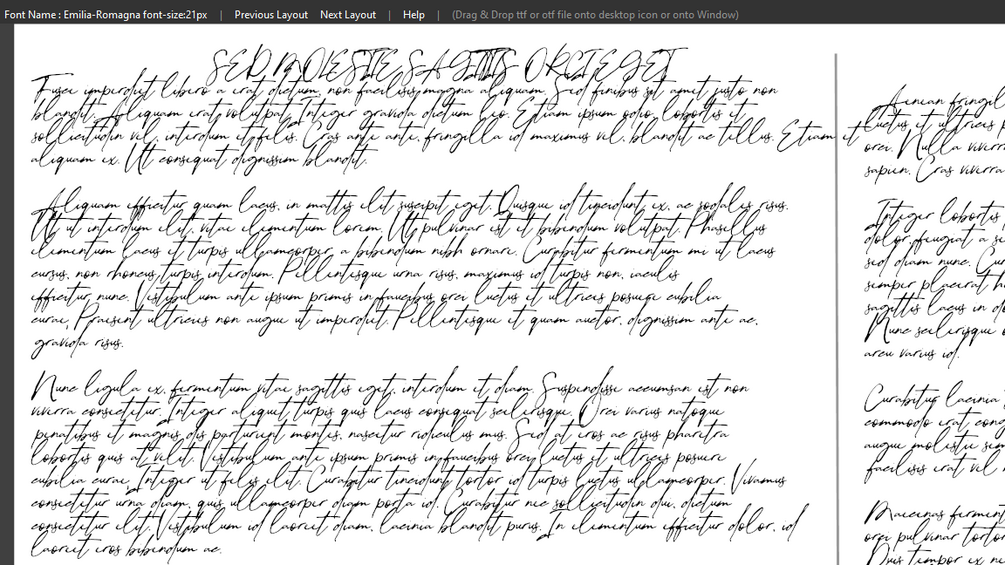 Font Name : Emilia-Romagna font-size:21px | Previous Layout Next Layout | Help | (Drag & Drop ttf or otf file onto desktop icon or onto Window)
SED MOLESTIE SAGITTIS ORCI EGET
Fusce imperdiet libero a erat dictum, non facilisis magna aliquam. Sed finibus set amet justo non
blandit. Aliquam erat volutpat. Integer gravida dictum leo. Etiam ipsum odio, lobortis et
sollicitudin vel, interdum et felis. Cras ante ante, fringilla id maximus vel, blandit ac tellus. Etiam et
aliquam ex. Ut consequat dignissim blandit.
Aliquam efficitur quam lacus, in mattis elit suscipit eget. Quisque id tincidunt ex, ac sodales risus.
Ut ut interdum elit, vitae elementum lorem. Ut pulvinar est et bibendum volutpat. Phasellus
elementum lacus et turpis ullamcorper, a bibendum nibh ornare. Curabitur fermentum mi ut lacus
cursus, non rhoncus turpis interdum. Pellentesque urna risus, maximus id turpis non, iaculis
efficitur nunc. Vestibulum ante ipsum primis in faucibus orci luctus et ultrices posuere cubilia
curae; Praesent ultricies non augue ut imperdiet. Pellentesque et quam auctor, dignissim ante ac,
gravida risus.
Nunc ligula ex, fermentum vitae sagittis eget, interdum et diam. Suspendisse accumsan est non
viverra consectetur. Integer aliquet turpis quis lacus consequat scelerisque. Orci varius natoque
penatibus et magnis dis parturient montes, nascetur ridiculus mus. Sed at eros ac risus pharetra
lobortis quis at velit. Vestibulum ante ipsum primis in faucibus orci luctus et ultrices posuere
cubilia curae; Integer ut felis elit. Curabitur tincidunt tortor id turpis luctus ullamcorper. Vivamus
consectetur urna diam, quis ullamcorper diam porta id. Curabitur nec sollicitudin dui, dictum
consectetur elit. Vestibulum id laoreet diam, lacinia blandit purus. In elementum efficitur dolor, id
laoreet eros bibendum ac.
Aenean fringil
luctus et ultrices p
orci. Nulla viverra
sapien. Cras viverra
Integer lobortis
dolor, feugiat a se
sed diam nunc. Cur
semper placerat h
sagittis lacus in do
Nunc scelerisque o
arcu varius id.
Curabitur lacinia
commodo erat cong
augue molestie sem
facilisis erat vel
Maecenas ferment
orci pulvinar tortor
Duis tempor ex ne